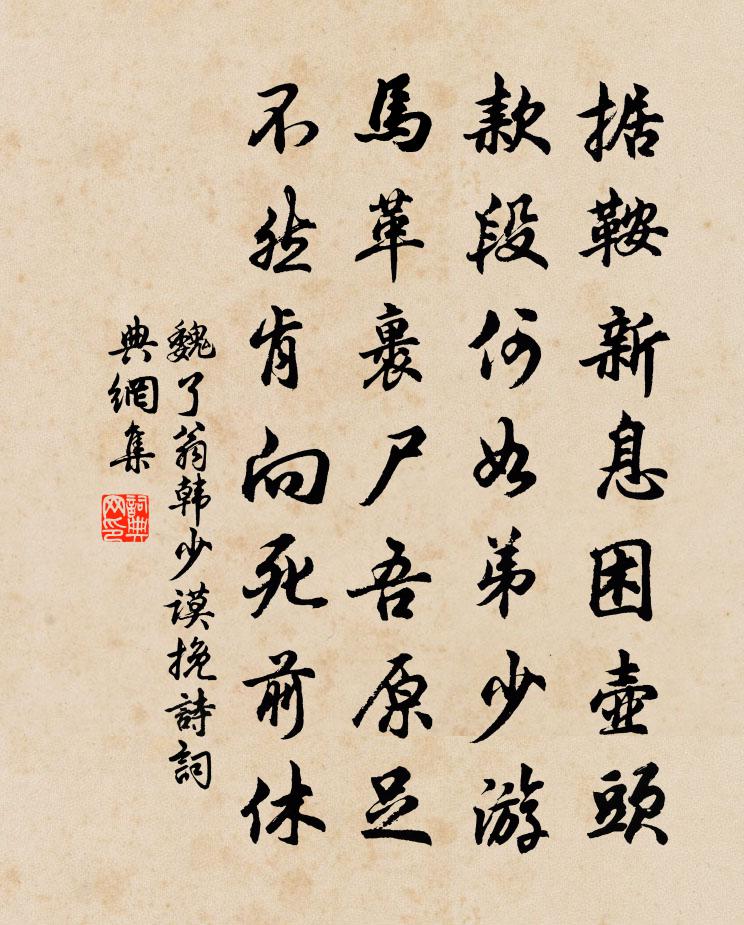 据鞍新息困壶頭
款段何如弟少游
馬革裹尸吾原足
不然肯向死前休
魏了翁韩少谟挽詩詞
典網集
詞典
网印